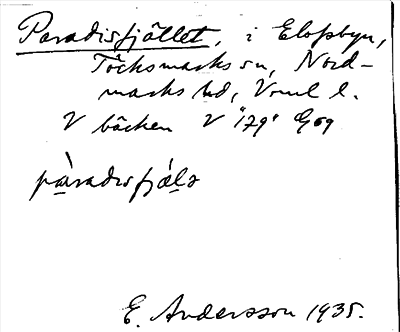 Paradisfjället, i Elofsbyn,
Töcksmarks sn, Nord-
marks hd, Vrml l.
V bäcken V "179" Gög
pàradisfjälə
E. Andersson 1935.